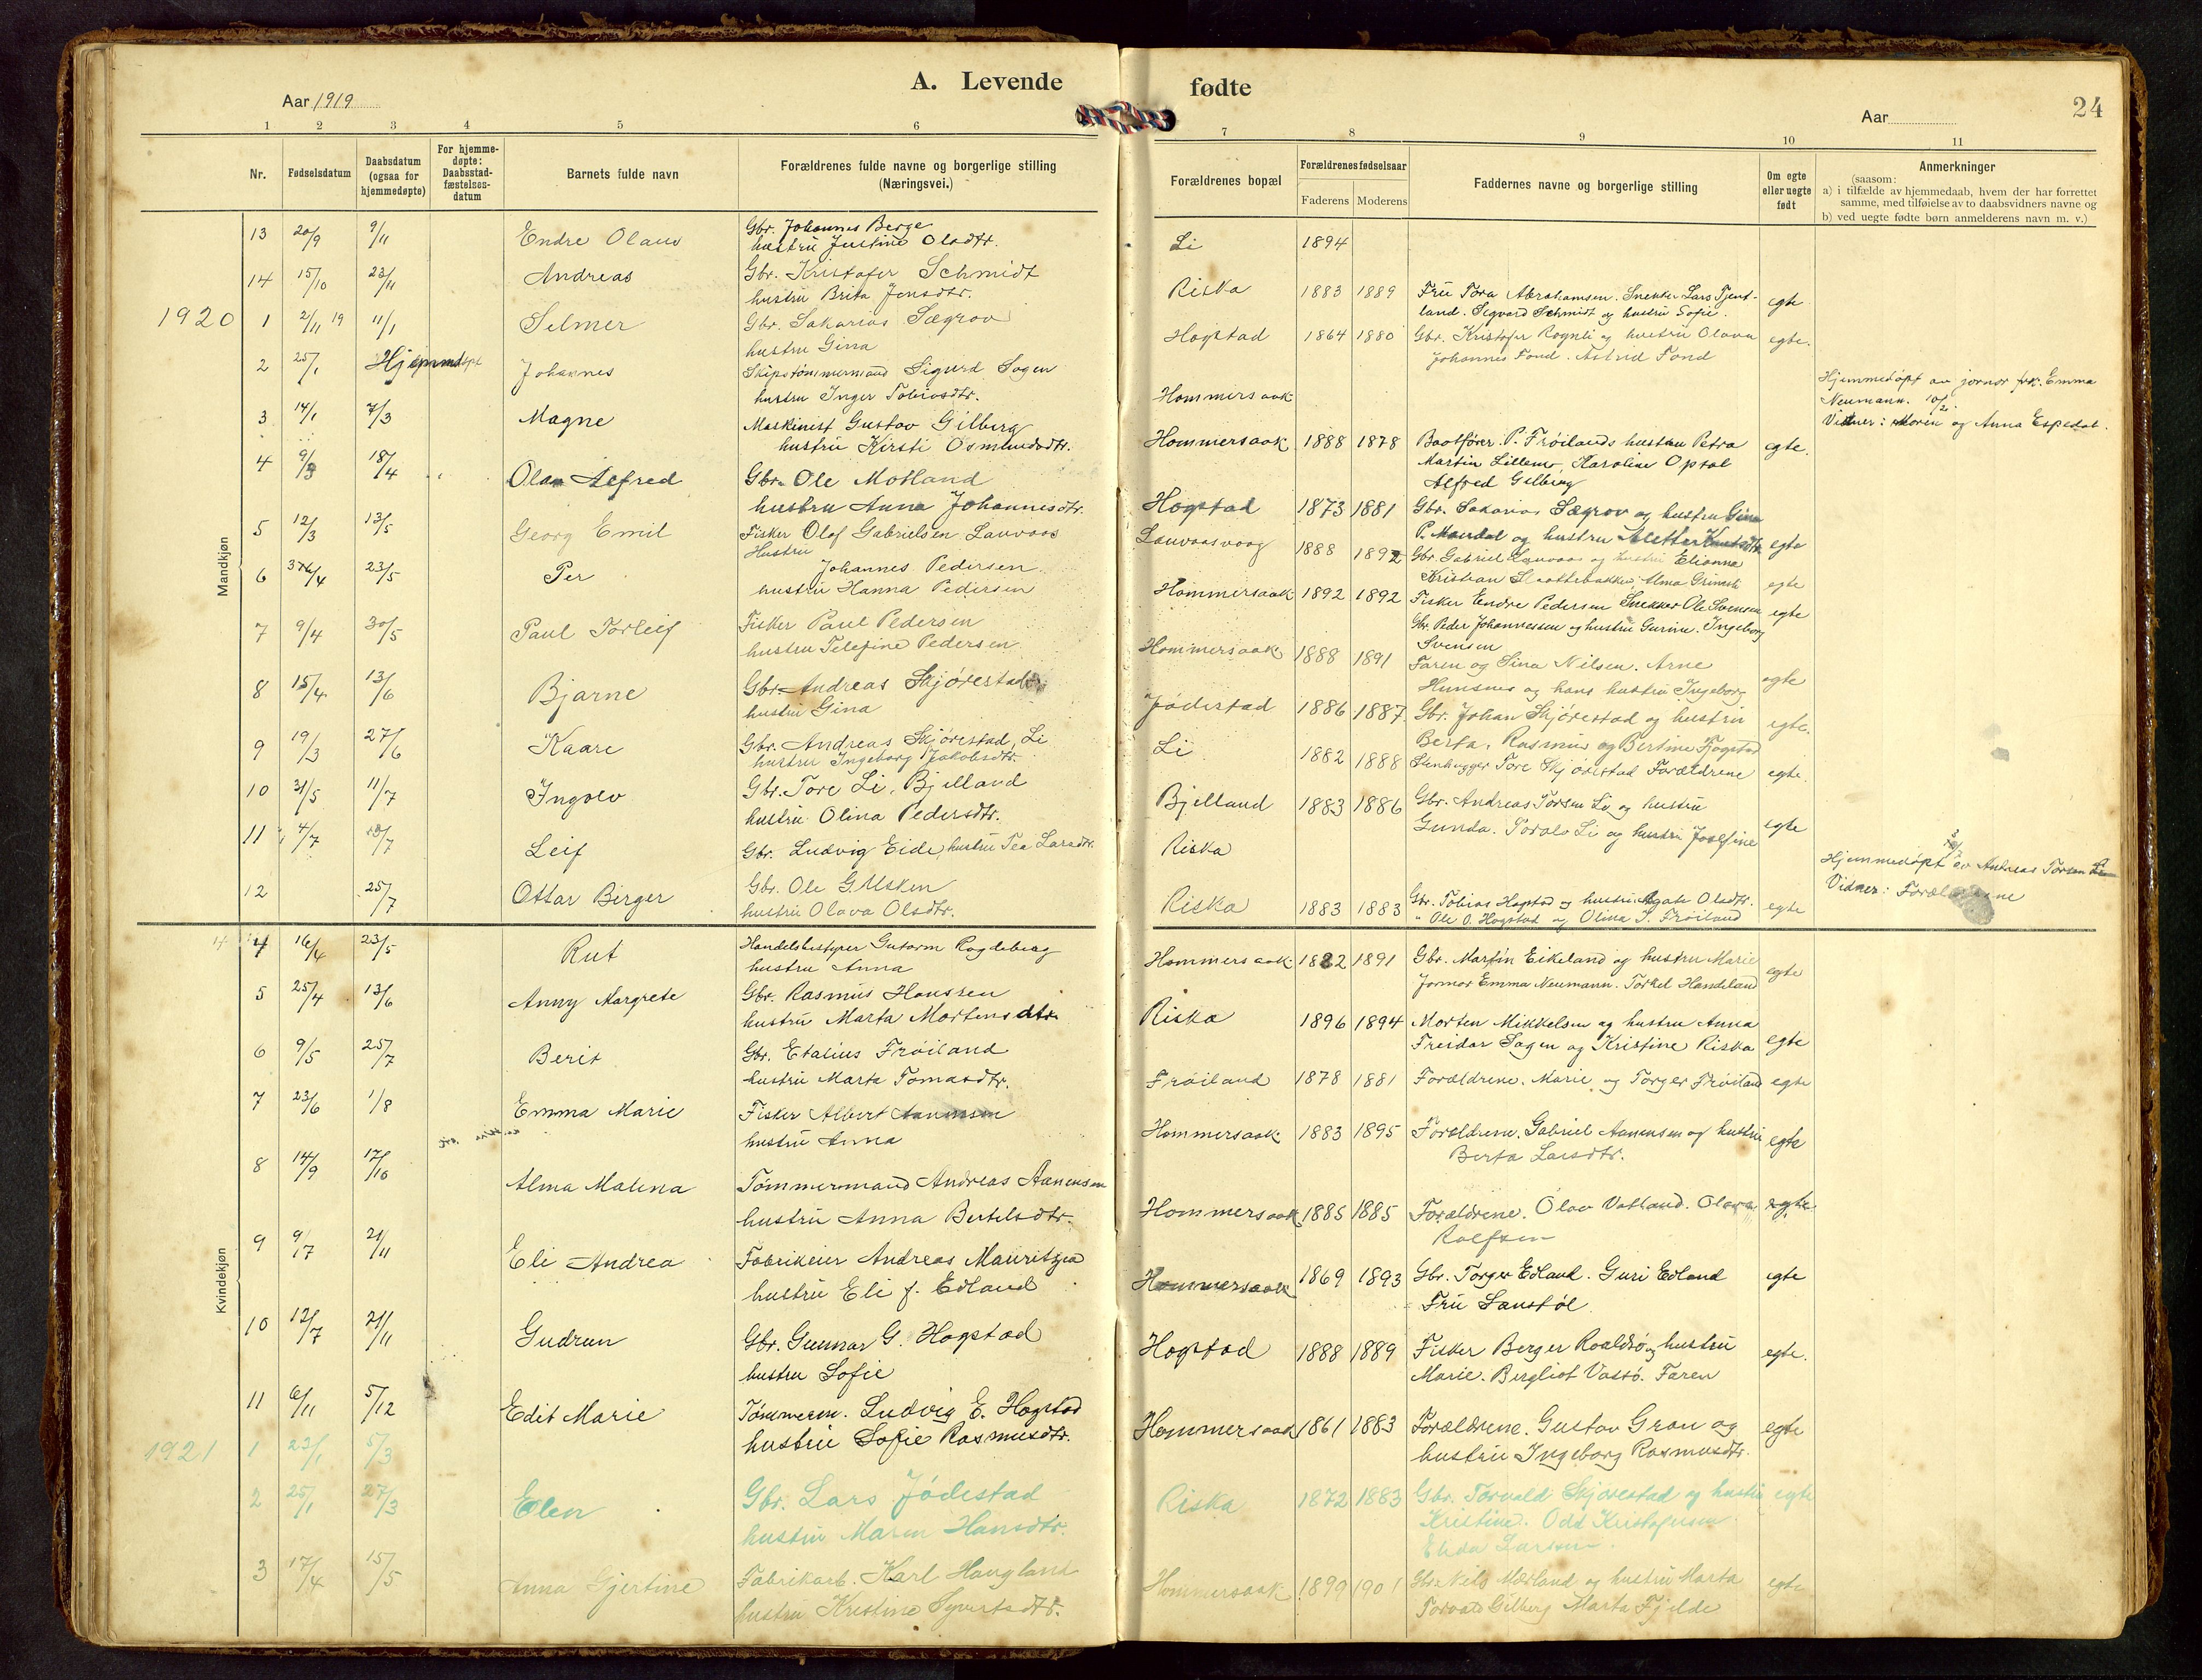 A. Levende fødte
24
Aar 1919
Aar
1 2 3 4 5 6 7 8 9 10 11
Nr.
Fødselsdatum
Daabsdatum (ogsaa for hjemmedøpte)
For hjemme-døpte: Daabsstad-fæstelses-datum
Barnets fulde navn
Forældrenes fulde navne og borgerlige stilling (Næringsvei.)
Forældrenes bopæl
Forældrenes fødselsaar
Faderens Moderens
Faddernes navne og borgerlige stilling
Om egte eller uegte født
Anmerkninger
(saasom:
a) i tilfælde av hjemmedaab, hvem der har forrettet samme, med tilføielse av to daabsvidners navne og
b) ved uegte fødte børn anmelderens navn m. v.)
Mandkjøn
13 20/9 9/11 Endre Olaus Gbr. Johannes Berge Li 1894
hustru Justine Olsdtr.
14 15/10 23/11 Andreas Gbr. Kristofer Schmidt Riska 1883 1889 Fru Tora Abrahamsen. Snekker Lars Tjent- egte
hustru Brita Jensdtr. land. Sigvard Schmidt og hustru Sofie.
1920 1 2/11 19 11/1 Selmer Gbr. Sakarias Sægrov Hogstad 1864 1880 Gbr. Kristofer Rogndi og hustru Olava egte.
hustru Gina Johannes Fond. Astrid Fond
2 25/1 Hjemmedøpt Johannes Skipstømmermand Sigurd Sagen Hommersaak Hjemmedøpt av jormor frk. Emma
hustru Inger Tobiasdtr. Neumann. 10/2.
Vidner: Moren og Anna Espedal.
3 14/1 7/3 Magne Maskinist Gustav Gilberg Hommersaak 1888 1878 Baatfører P. Frøilands hustru Petra egte.
hustru Kirsti Osmundsdtr. Martin Lillemo, Karoline Opsal
Alfred Gilberg
4 9/3 18/4 Olav Alfred Gbr. Ole Motland Hogstad 1873 1881 Gbr. Sakarias Sægrov og hustru Gina
hustru Anna Johannesdtr. P. Maudal og hustru Alette Knutsdtr. egte
5 12/3 13/5 Georg Emil Fisker Olaf Gabrielsen Lauvaas Lauvaasvaag 1888 1892 Gbr. Gabriel Lauvaas og hustru Elianna
Hustru Kristian Slottebakken, Alma Grimsli egte
6 6/4 23/5 Per Johannes Pedersen Hommersaak 1892 1892 Fisker Endre Pedersen Snekker Ole Svensen egte
hustru Hanna Pedersen Gbr. Peder Johannessen og hustru Gurine. Ingeborg
Svensen
7 9/4 30/5 Paul Torleif Fisker Paul Pedersen Hommersaak 1888 1891 Faren og Sina Nilsen. Arne
hustru Telefine Pedersen Hunsnes og hans hustru Ingeborg egte
8 15/4 13/6 Bjarne Gbr. Andreas Skjørestad Jødestad 1886 1887 Gbr. Johan Skjørestad og hustru egte.
hustru Gina Berta. Rasmus og Bertine Fjogstad
9 19/3 27/6 Kaare Gbr. Andreas Skjørestad, Li Li 1882 1888 Stenhugger Tore Skjørestad Forældrene egte.
hustru Ingeborg Jakobsdtr.
10 31/5 11/7 Ingolv Gbr. Tore Li, Bjelland Bjelland 1883 1886 Gbr. Andreas Torsen Li og hustru egte
hustru Olina Pedersdtr. Gunda. Toralv Li og hustru Josefine
11 4/7 Leif Gbr. Ludvig Eide, hustru Tea Larsdtr. Riska Hjemmedøpt av Andreas Torsen Li
Vidner: Forældrene
12 25/7 Ottar Birger Gbr. Ole G Usken Riska 1883 1883 Gbr. Tobias Hogstad og hustru Agate Olsdtr. egte
hustru Olava Olsdtr. " Ole O. Hogstad og Olina T. Frøiland
Kvindekjøn
4 16/4 23/5 Rut Handelsbestyrer Gutorm Rogdeberg Hommersaak 1882 1891 Gbr. Martin Eikeland og hustru Marie egte
hustru Anna Jormor Emma Neumann. Torkel Handeland
5 25/4 13/6 Anny Margrete Gbr. Rasmus Hanssen Riska 1896 1894 Morten Mikkelsen og hustru Anna egte
hustru Marta Mortensdtr. Freidar Sagen og Kristine Riska
6 9/5 25/7 Berit Gbr. Etalius Frøiland Frøiland 1878 1881 Forældrene. Marie og Torger Frøiland egte
hustru Marta Tomasdtr.
7 23/6 1/8 Emma Marie Fisker Albert Aanensen Hommersaak 1883 1895 Forældrene. Gabriel Aanensen og hustru egte
hustru Anna Berta Larsdtr.
8 14/9 17/10 Alma Malena Tømmermand Andreas Aanensen Hommersaak 1885 1885 Forældrene. Olav Vatland. Olava egte
hustru Anna Bertelsdtr. Rolfsen
9 9/7 21/11 Eli Andrea Fabrikeier Andreas Mauritzen Hommersaak 1869 1893 Gbr. Torger Edland. Guri Edland egte
hustru Eli f. Edland Fru Sanstøl
10 12/7 21/11 Gudrun Gbr. Gunnar G. Hogstad Hogstad 1888 1889 Fisker Berger Roaldsø og hustru egte.
hustru Sofie Marie. Bergliot Vassø. Faren
11 6/11 5/12 Edit Marie Tømmerm. Ludvig E. Hogstad Hommersaak 1861 1883 Forældrene. Gustav Gran og egte
hustru Sofie Rasmusdtr. hustru Ingeborg Rasmusdtr.
1921 1 23/1 5/3
2 25/1 27/3 Elen Gbr. Lars Jødestad Riska 1872 1883 Gbr. Torvald Skjørestad og hustru egte
hustru Maren Hansdtr. Kristine. Odd Kristofersen
Larsen.
3 17/4 15/5 Anna Gjertine Fabrikarb. Karl Haugland Hommersaak 1899 1901 Gbr. Nils Mæland og hustru Marta egte
hustru Kristine Syvertsdtr. Torvald Gilberg Marta Fjelde